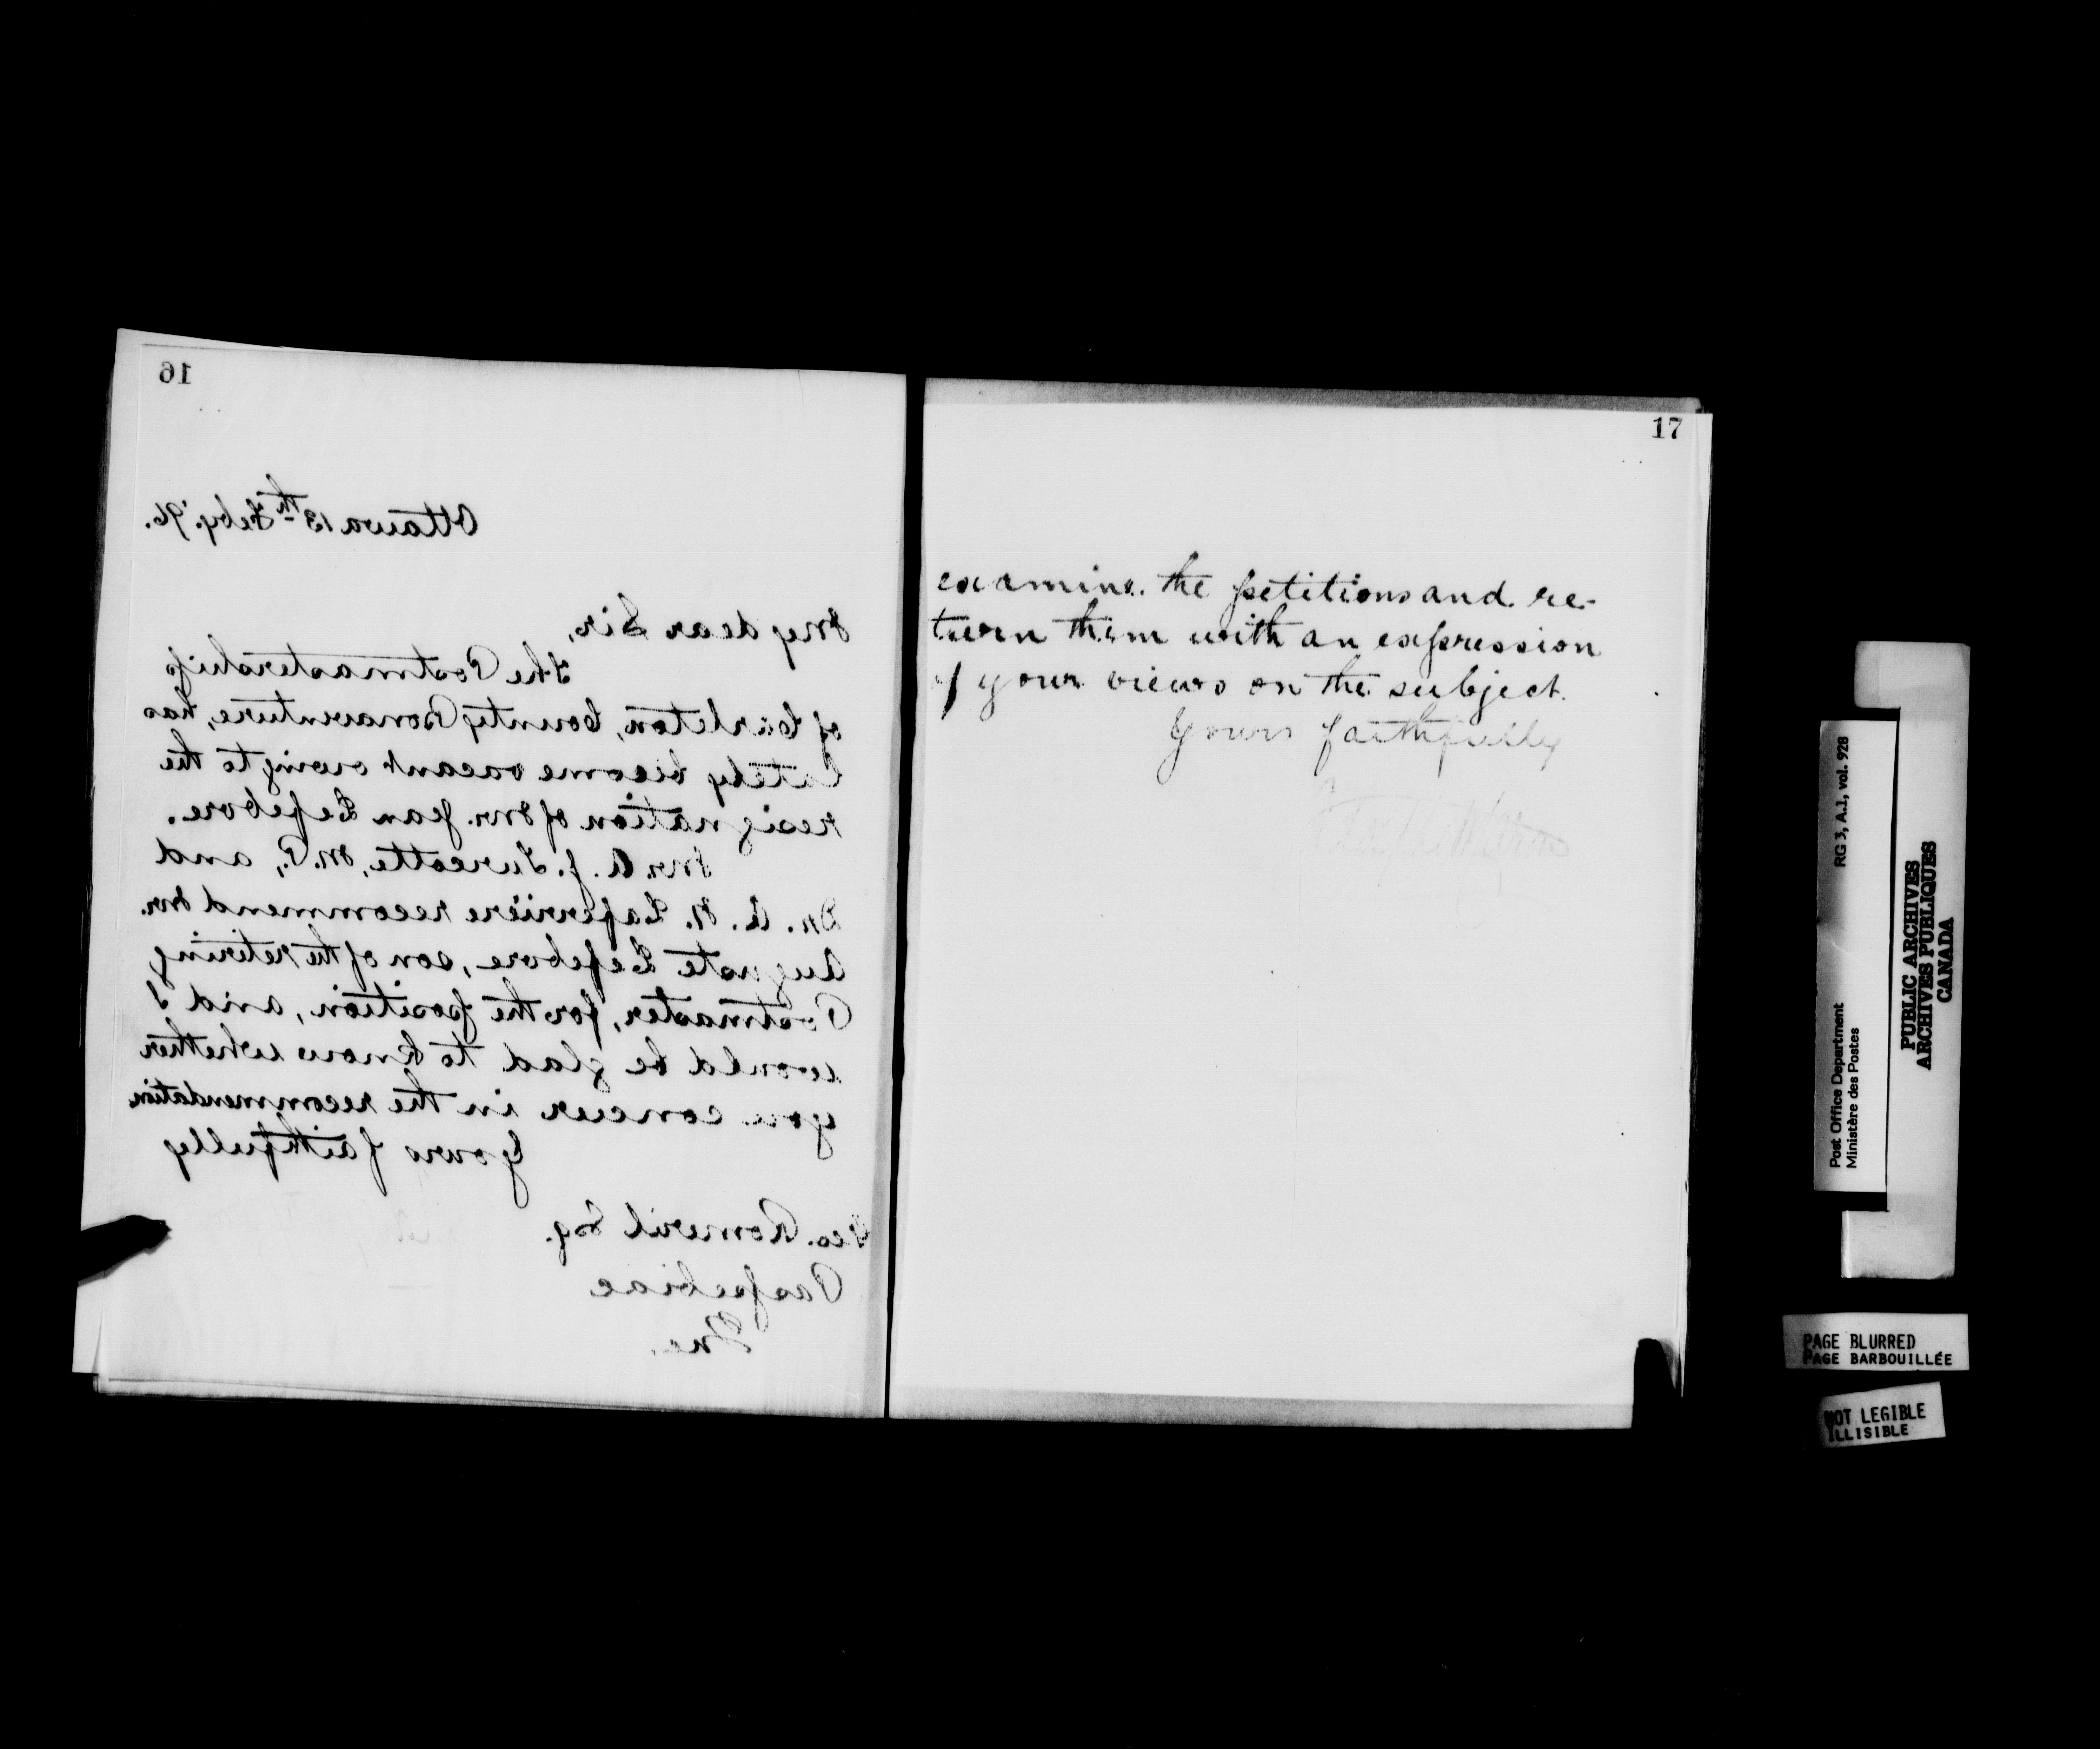 16
Ottawa 13th Feby. '96.
My dear Sir,
The Postmastership
of Carleton, County Bonaventure, has
lately become vacant owing to the
resignation of Mr. Jean Lefebvre.
Mr. A. J. Turcotte, M.P., and
Dr. A. N. Laferrière recommend Mr.
Auguste Lefebvre, son of the retiring
Postmaster, for the position, and I
would be glad to know whether
you concur in the recommendation
Yours faithfully
Geo. Romeril Esq.
Paspebiac
Que.
17
examine the petitions and re-
turn them with an expression
of your views on the subject.
Yours faithfully
Post Office Department RG 3, A.1, vol. 928
Ministère des Postes
PUBLIC ARCHIVES
ARCHIVES PUBLIQUES
CANADA
PAGE BLURRED
PAGE BARBOUILLÉE
NOT LEGIBLE
ILLISIBLE